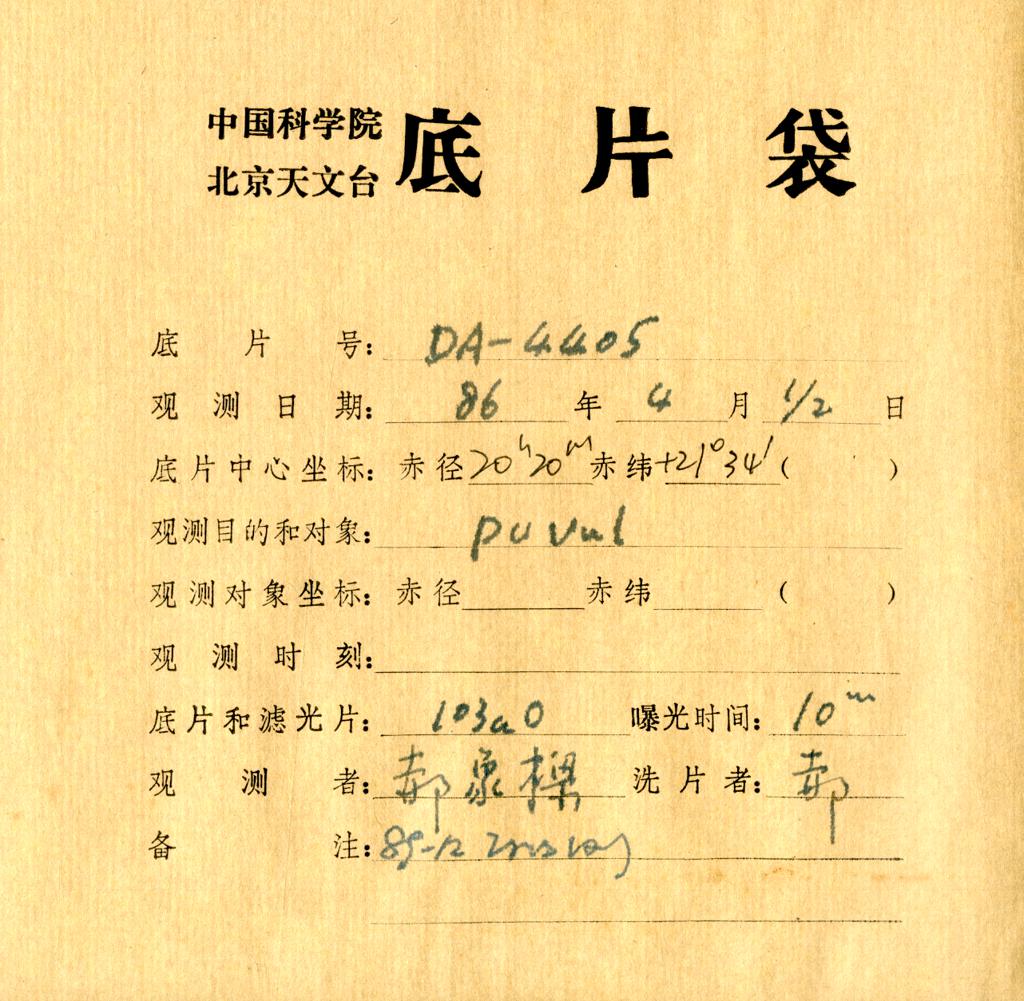 中国科学院
北京天文台 底片袋
底片号: DA-4405
观测日期: 86年4月1/2日
底片中心坐标: 赤径20h20m赤纬+21°34′( )
观测目的和对象: PU Vul
观测对象坐标: 赤径 赤纬 ( )
观测时刻:
底片和滤光片: 103aO 曝光时间: 10m
观测者: 郝象樑 洗片者: 郝
备注: 85-12